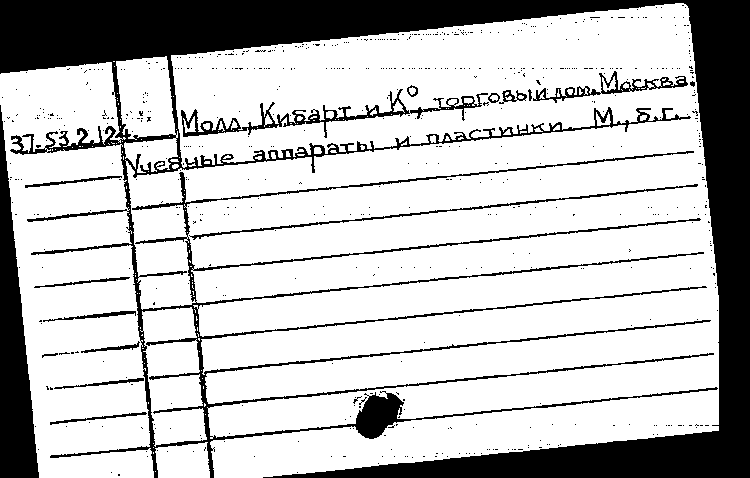 Молл, Кибарт и К°, торговый дом. Москва.
37.53.2.124.
Учебные аппараты и пластинки. М., б.г.